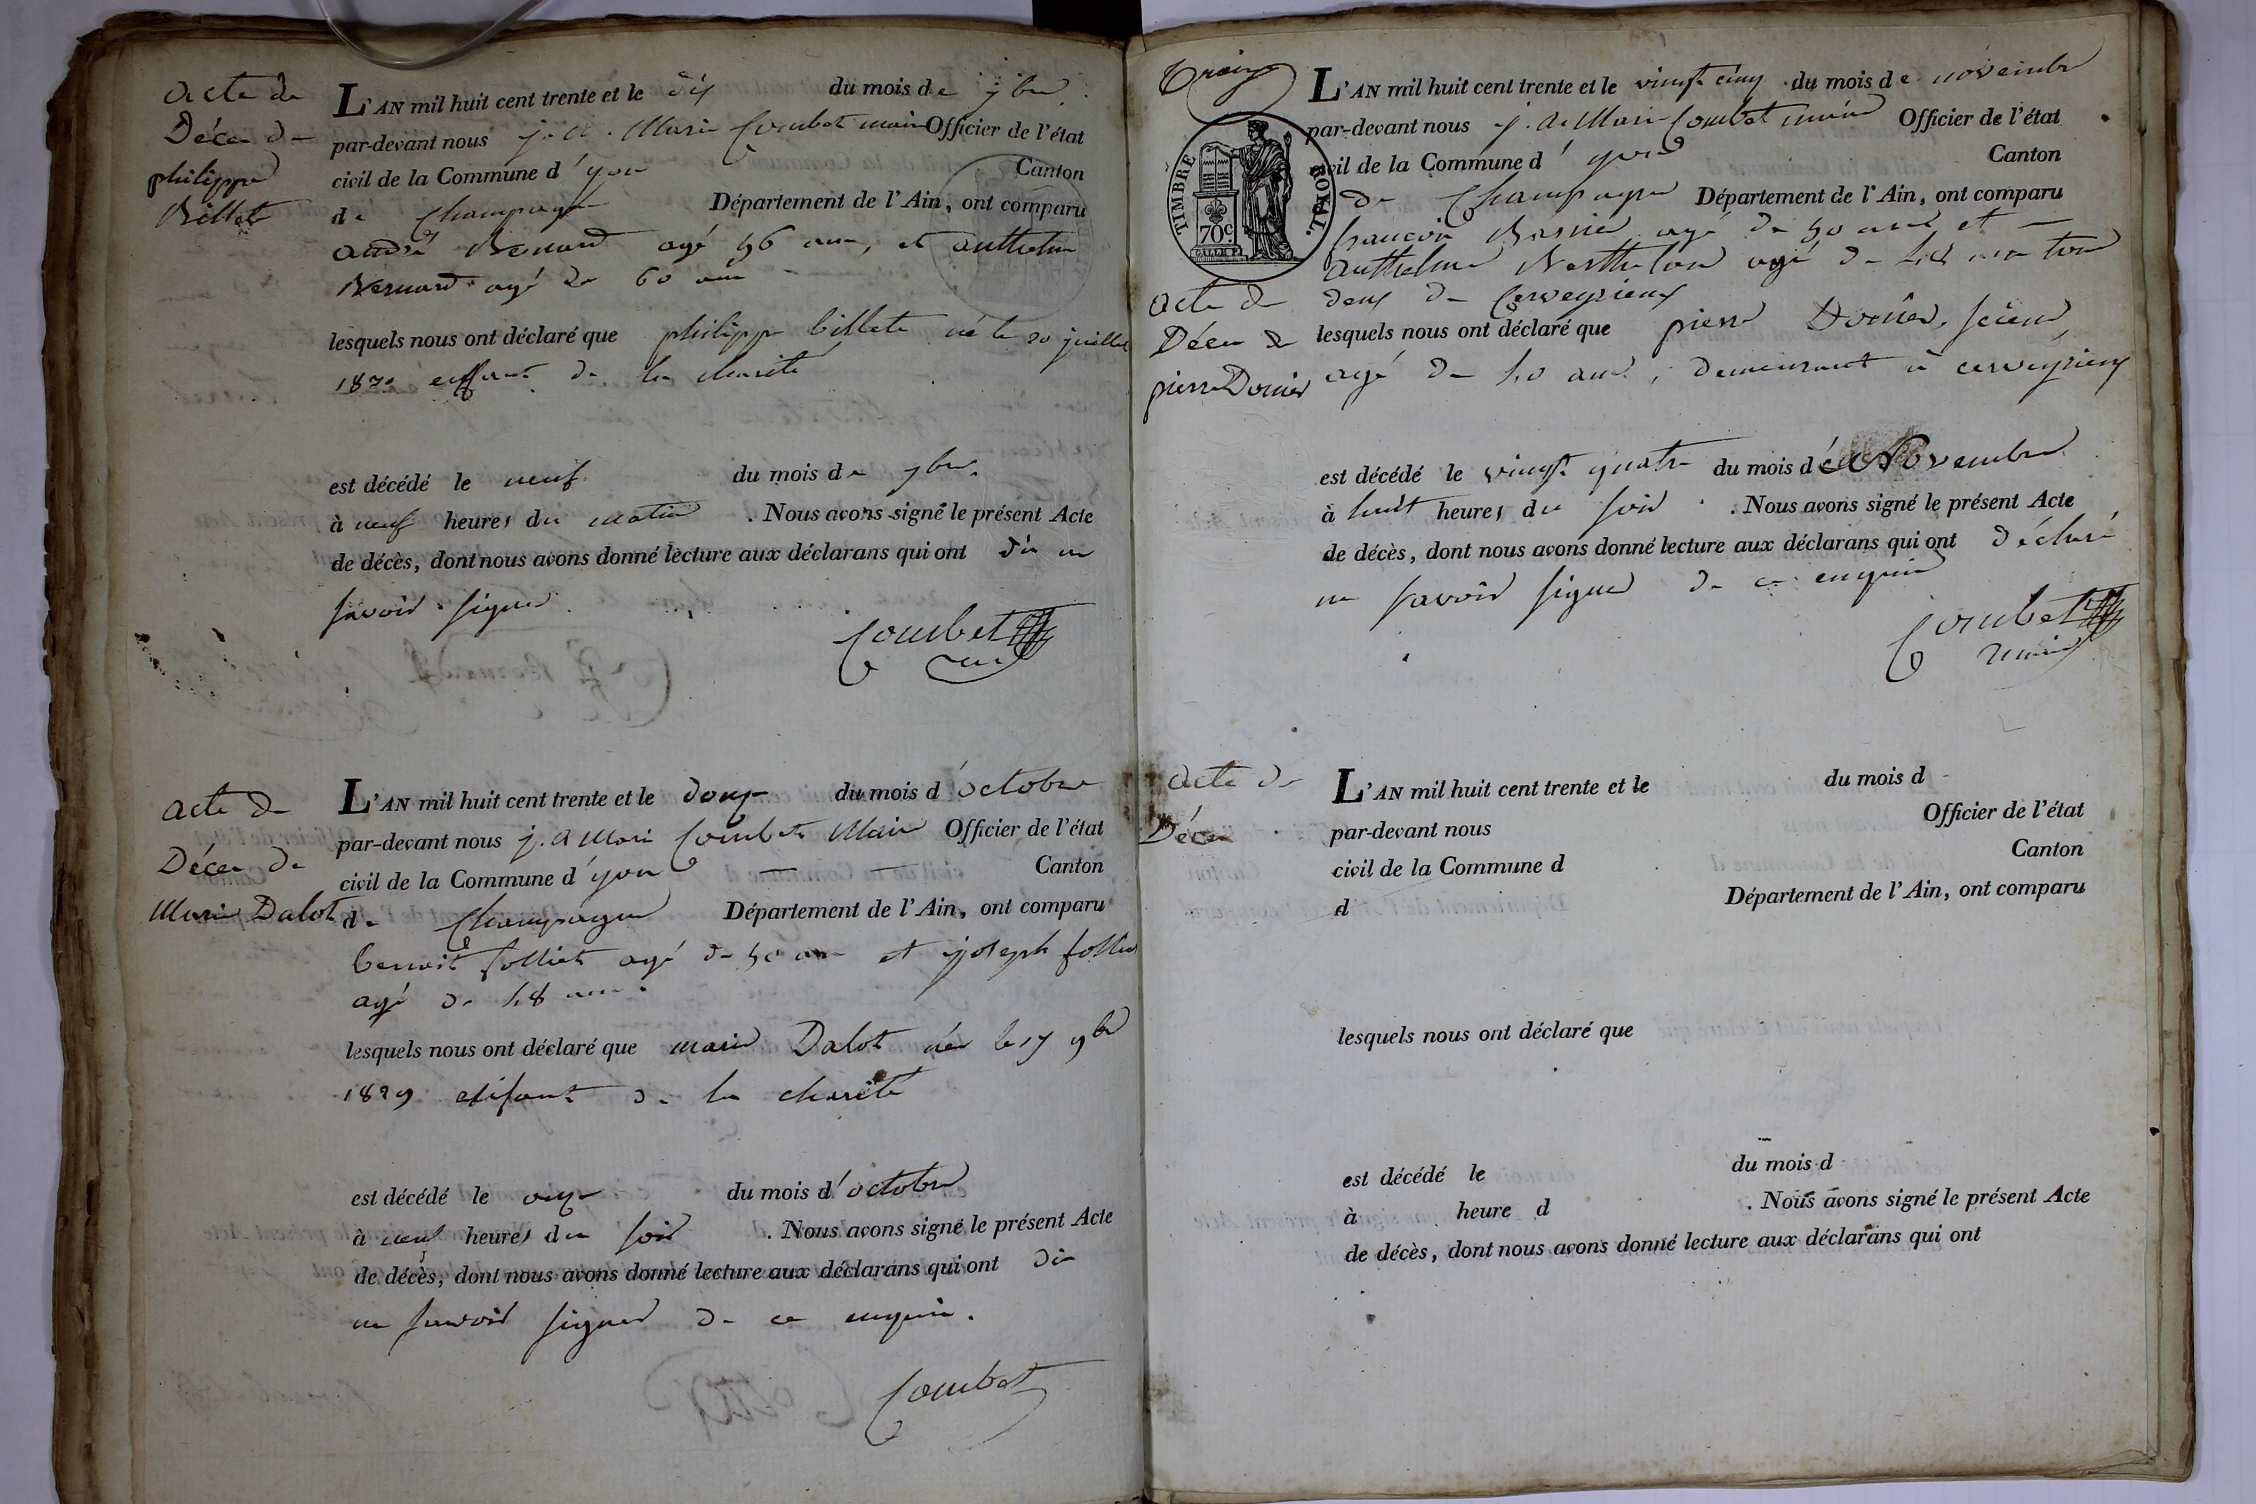 acte de
Décès de
philippe
Billet
L'AN mil huit cent trente et le dix du mois de 7bre
par-devant nous j. A. Marie Combet maire Officier de l'état
civil de la Commune d'yon Canton
de Champagne Département de l'Ain, ont comparu
andré Bernard agé 56 ans, et anthelme
Bernard agé de 60 ans
lesquels nous ont déclaré que philippe billet né le 20 juillet
1830 enfant de la charité
est décédé le neuf du mois de 7bre
à neuf heures du matin . Nous avons signé le présent Acte
de décès, dont nous avons donné lecture aux déclarans qui ont dit ne
savoir signer
Combet
acte de
Décès de
Marie Dalot
L'AN mil huit cent trente et le douze du mois d'octobre
par-devant nous j. A Marie Combet Maire Officier de l'état
civil de la Commune d'yon Canton
de Champagne Département de l'Ain, ont comparu
benoit folliet agé de 50 ans et joseph folliet
agé de 48 ans.
lesquels nous ont déclaré que marie Dalot née le 17 9bre
1829 enfant de la charité
est décédé le onze du mois d'octobre
à neuf heures du soir . Nous avons signé le présent Acte
de décès, dont nous avons donné lecture aux déclarans qui ont dit
ne savoir signer de ce enquis.
Combet
TIMBRE ROYAL.
70c.
acte de
Décès de
pierre Dornier
L'AN mil huit cent trente et le vingt cinq du mois de novembre
par-devant nous j. A. Marie Combet maire Officier de l'état
civil de la Commune d'yon Canton
de Champagne Département de l'Ain, ont comparu
françois agé de 50 ans et
anthelme Berthelon agé de 48 ans tous
deux de Cerveyrieux
lesquels nous ont déclaré que pierre
agé de 40 ans, demeurant à cerveyrieux
est décédé le vingt quatre du mois de Novembre
à huit heures du soir . Nous avons signé le présent Acte
de décès, dont nous avons donné lecture aux déclarans qui ont déclaré
ne savoir signer de ce enquis
Combet
maire
acte de
Décès
L'AN mil huit cent trente et le du mois d
par-devant nous Officier de l'état
civil de la Commune d Canton
d Département de l'Ain, ont comparu
lesquels nous ont déclaré que
est décédé le du mois d
à heure d . Nous avons signé le présent Acte
de décès, dont nous avons donné lecture aux déclarans qui ont